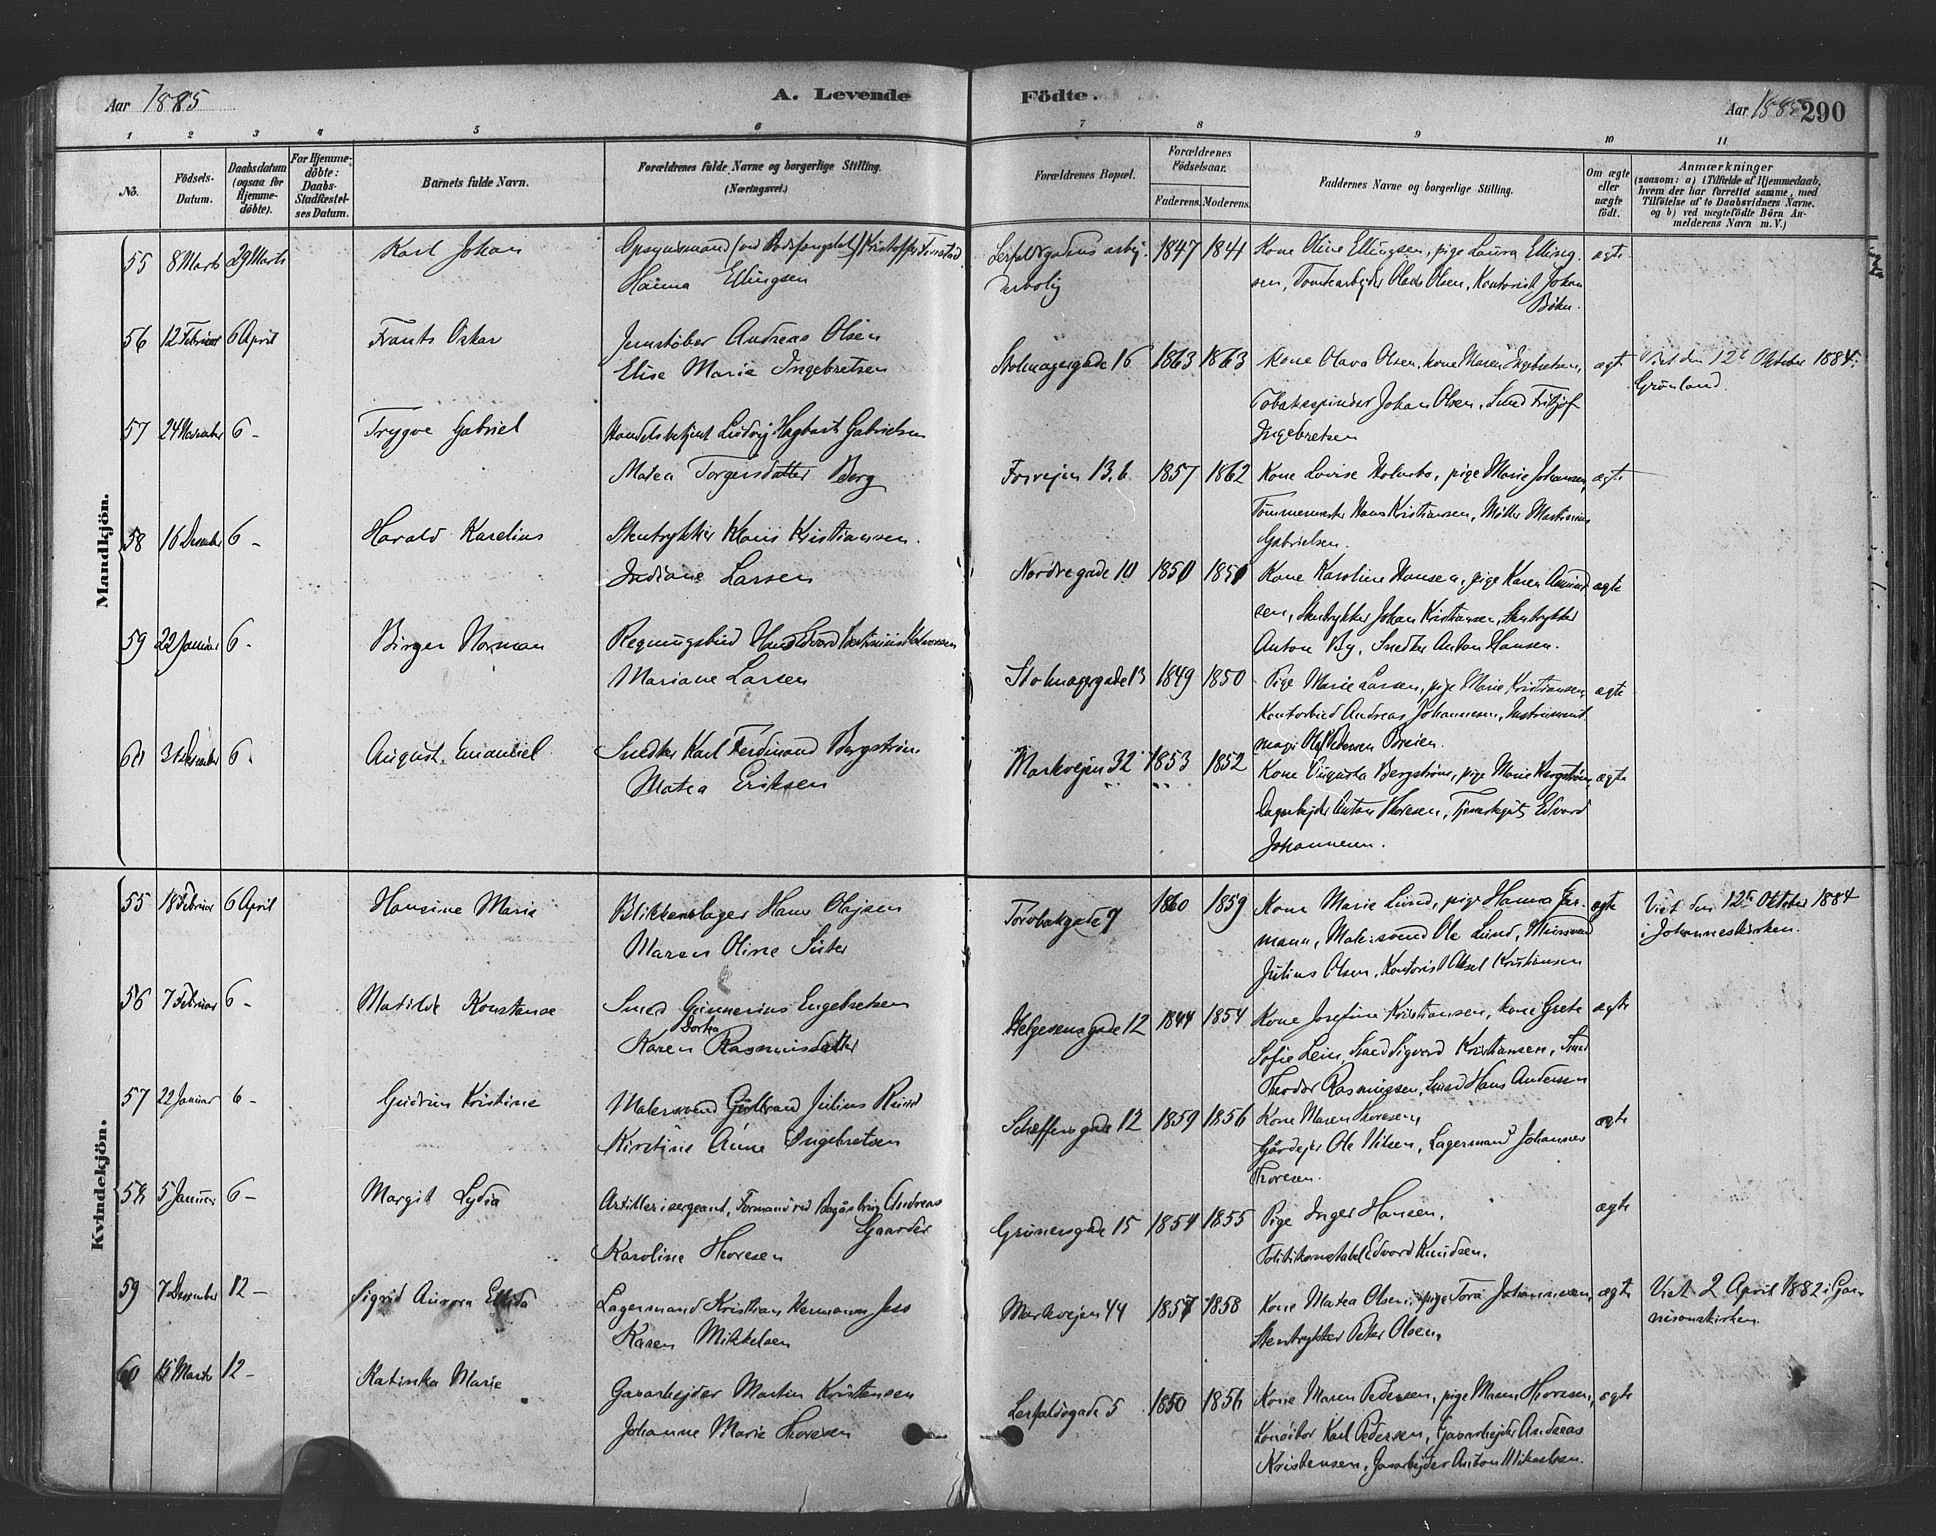 Aar 1885 A. Levende Födte. Aar 1885 290
1 2 3 4 5 6 7 8 9 10 11
No.
Födsels-Datum.
Daabsdatum (ogsaa for Hjemme-döbte).
For Hjemme-döbte: Daabs-Stadfæstel-ses Datum.
Barnets fulde Navn.
Forældrenes fulde Navne og borgerlige Stilling. (Næringsvei.)
Forældrenes Bopæl.
Forældrenes Födselsaar.
Faderens. Moderens.
Faddernes Navne og borgerlige Stilling.
Om ægte eller uægte födt.
Anmærkninger
(saasom: a) i Tilfælde af Hjemmedaab,
hvem der har forrettet samme, med
Tilföielse af to Daabsvidners Navne.
og b) ved uægtefödte Börn An-
melderens Navn m. V.)
Mandkjön.
55 8 Marts 29 Marts Karl Johan
Hanna Ellingsen
1847 1841
Kone Oline Ellingsen, pige Laura Elling-
sen, Olsen, Kontorist Johan
ægte
56 12 Februar 6 April Frants Oskar
Jernstøber Andreas Olsen
Elise Marie Ingebretsen
Stolmagergade 16 1863 1863
Kone Olava Olsen, kone Maren Ingebretsen,
Tobakspinder Johan Olsen, Smed Fritjof
Ingebretsen
ægte
Viet den 12te Oktober 1884.
Grønland.
57 24 November 6 - Trygve Gabriel
Handelsbetjent Ludvig Hagbart Gabrielsen
Matea Torgersdatter Berg
Fosvejen 13.b 1857 1862
Kone Lovise Holmbo, pige Marie Johansen,
Tømmermester Hans Kristiansen, Møller Martinius
Gabrielsen.
ægte
58 16 Desember 6 - Harald Karelius
Stentrykker Hans Kristiansen.
Indiane Larsen
Nordregade 10 1850 1850
Kone Karoline Hansen, pige Karen Amund
sen, Stentrykker Johan Kristiansen, Stentrykker
Anton By, Snedker Anton Hansen.
ægte
59 22 Januar 6 - Birger Norman
Mariane Larsen
Stolmagergade 13 1849 1850
Pige Marie Larsen, pige Marie Kristiansen,
Kontorbud Andreas Johannesen, Instrument
mager Breien.
ægte
60 31 Desember 6 - August Emanuel
Snedker Karl Ferdinand Bergstrøm
Matea Eriksen
Markvejen 32 1853 1852
Kone Augusta Bergstrøm, pige Marie Bergstrøm,
Dagarbejder Anton Thoresen, Edvard
Johannesen.
ægte
Kvindekjön.
55 18 Februar 6 April Hansine Marie
Blikkenslager Hans Olajsen
Maren Oline Sister
1860 1859
Kone Marie Lund, pige Hanna Jer-
mann, Malersvend Ole Lund, Mursvend
Julius Olsen, Kontorist Aksel Kristiansen
ægte
Viet den 12te Oktober 1884
i Johanneskirken.
56 7 Februar 6 - Matilde Konstanse
Smed Gunnerius Engebretsen
Karen Dortea Rasmusdatter
Helgesens gade 12 1844 1854
Kone Josefine Kristiansen, kone Grete
Sofie Lein, Smed Sigvard Kristiansen, Smed
Theodor Rasmussen, Smed Hans Andersen
ægte
57 22 Januar 6 - Gudrun Kristine
Malersvend Gulbrand Julius Rund
Kirstine Anne Ingebretsen
Scheffersgade 12 1859 1856
Kone Maren Thoresen,
Gårdejer Ole Nilsen, Lagermand Johannes
Thoresen.
ægte
58 5 Januar 6 - Margit Lydia
Artillerisergeant, Formand ved Andreas
Gaarder
Karoline Thoresen
Grünersgade 15 1854 1855
Pige Inger Hansen,
Politikonstabel Edvard Knudsen.
ægte
59 7 Desember 12 - Sigrid Aurora Ellida
Lagermand Kristian Hermann Jess
Karen Mikkelsen
Markvejen 44 1857 1858
Kone Matea Olsen, pige Tora Johannesen,
Stentrykker Peter Olsen,
ægte
Viet 2 April 1882 i Gar-
nisonskirken.
60 15 Marts 12 - Katinka Marie
Gasarbejder Martin Kristensen
Johanne Marie Thoresen
Lerfaldsgade 5 1850 1856
Kone Maren Pedersen, pige Maren Thoresen,
Konditor Karl Pedersen, Gasarbejder Andreas
Kristensen, Gasarbejder Anton Mikkelsen.
ægte